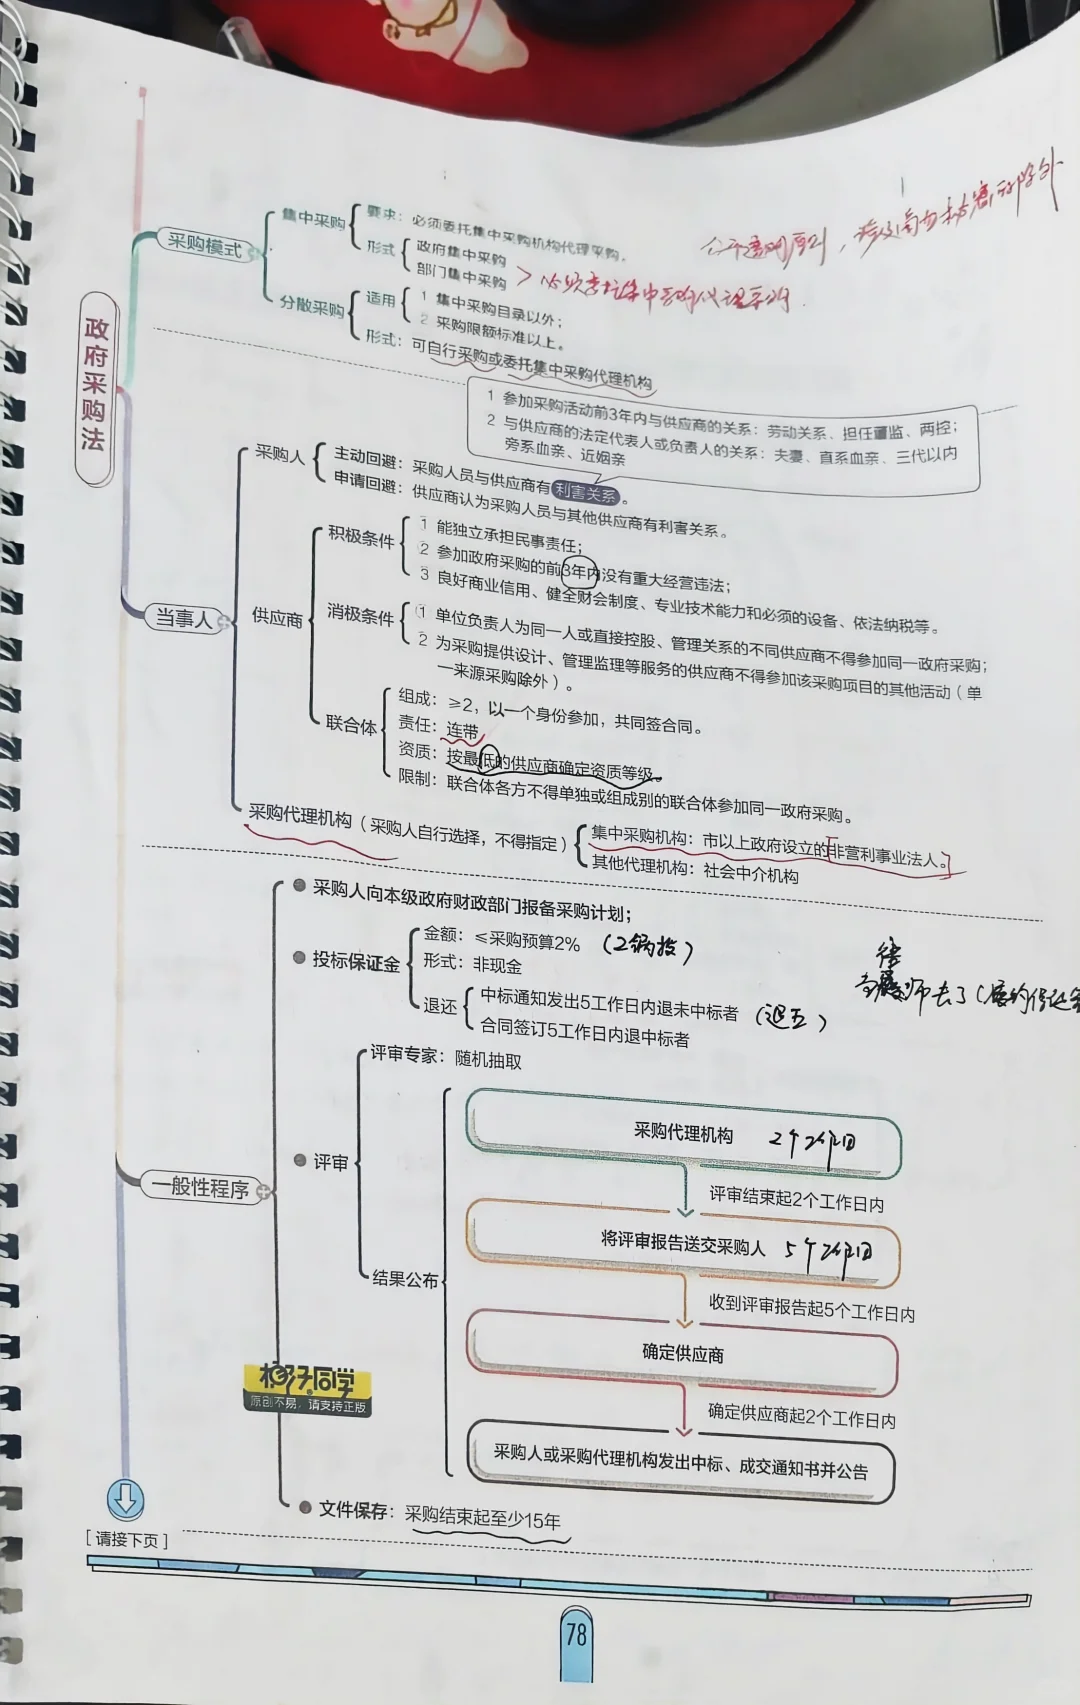 政府采购法
采购模式
集中采购
要求：必须委托集中采购机构代理采购。
形式
政府集中采购
部门集中采购
分散采购
适用
1 集中采购目录以外；
2 采购限额标准以上。
形式：可自行采购或委托集中采购代理机构
1 参加采购活动前3年内与供应商的关系：劳动关系、担任董监、两控；
2 与供应商的法定代表人或负责人的关系：夫妻、直系血亲、三代以内
旁系血亲、近姻亲
当事人
采购人
主动回避：采购人员与供应商有利害关系。
申请回避：供应商认为采购人员与其他供应商有利害关系。
供应商
积极条件
1 能独立承担民事责任；
2 参加政府采购的前3年内没有重大经营违法；
3 良好商业信用、健全财会制度、专业技术能力和必须的设备、依法纳税等。
消极条件
1 单位负责人为同一人或直接控股、管理关系的不同供应商不得参加同一政府采购；
2 为采购提供设计、管理监理等服务的供应商不得参加该采购项目的其他活动（单
一来源采购除外）。
联合体
组成：≥2，以一个身份参加，共同签合同。
责任：连带
资质：按最低的供应商确定资质等级。
限制：联合体各方不得单独或组成别的联合体参加同一政府采购。
采购代理机构（采购人自行选择，不得指定）
集中采购机构：市以上政府设立的非营利事业法人。
其他代理机构：社会中介机构
一般性程序
采购人向本级政府财政部门报备采购计划；
投标保证金
金额：≤采购预算2%（2锅投）
形式：非现金
退还
中标通知发出5工作日内退未中标者（退五）
合同签订5工作日内退中标者
评审
评审专家：随机抽取
结果公布
采购代理机构 2个工作日
评审结束起2个工作日内
将评审报告送交采购人 5个工作日
收到评审报告起5个工作日内
确定供应商
确定供应商起2个工作日内
采购人或采购代理机构发出中标、成交通知书并公告
文件保存：采购结束起至少15年
杨子同学
原创不易，请支持正版
[请接下页]
78